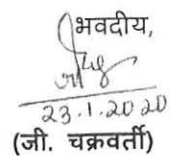 भवदीय,
23.1.2020
(जी. चक्रवर्ती)